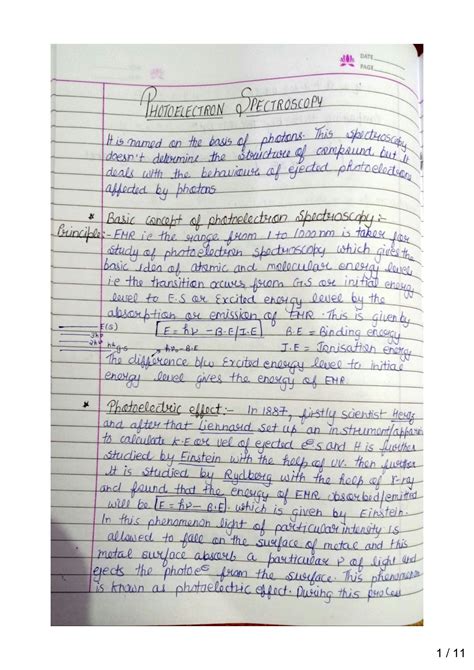 DATE
PAGE
PHOTOELECTRON SPECTROSCOPY
It is named on the basis of photons. This spectroscopy
doesn't determine the structure of compound but it
deals with the behaviour of ejected photoelectrons
affected by photons
* Basic concept of photoelectron Spectroscopy:-
Principle:- EMR i.e the range from 1 to 1000nm is taken for
study of photoelectron spectroscopy which gives the
basic idea of atomic and molecular energy level
i.e the transition occurs from G.S or initial energy
level to E.S or Excited energy level by the
absorption or emission of EMR. This is given by
E(S) [E = hν - B.E/I.E] B.E = Binding energy
hν - B.E I.E = Ionisation energy
g.s
The difference b/w Excited energy level to initial
energy level gives the energy of EMR.
* Photoelectric effect:- In 1887, firstly scientist Hertz
and after that Liennard set up an instrument/apparatus
to calculate K.E or vel of ejected es and it is further
studied by Einstein with the help of UV. then further
It is studied by Rydberg with the help of X-ray
and found that the energy of EMR absorbed/emitted
will be [E = hν - B.E]. which is given by Einstein.
In this phenomenon light of particular intensity is
allowed to fall on the surface of metal and this
metal surface absorb a particular ν of light and
ejects the photoe⊖ from the surface. This phenomenon
is known as photoelectric effect. During this process
1 / 11